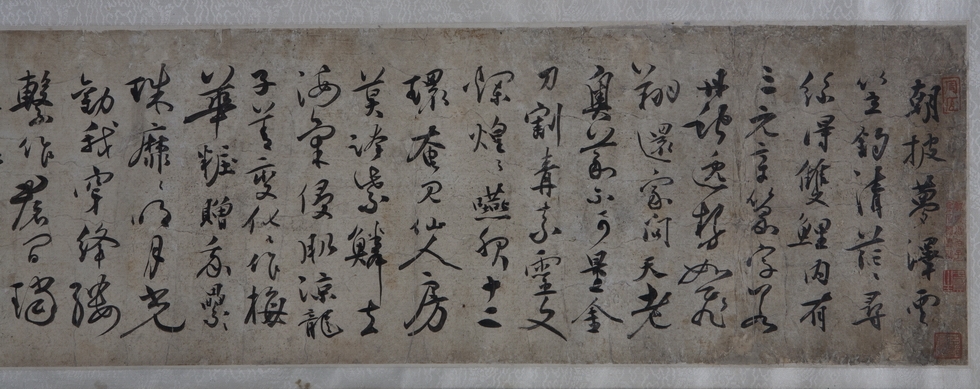 朝披夢澤雲
笠釣清茫〻尋
絲得雙鯉内有
三元章篆字若
丹蛇逸勢如飛
翔還家問天老
奧義不可量金
刀割青素靈文
爛煌〻嚥服十二
環奄見仙人房
莫跨紫鱗去
海氣侵肌涼龍
子善變化〻作梅
華粧贈我纍〻
珠靡〻明月光
勸我穿絳縷
繫作裙間璫